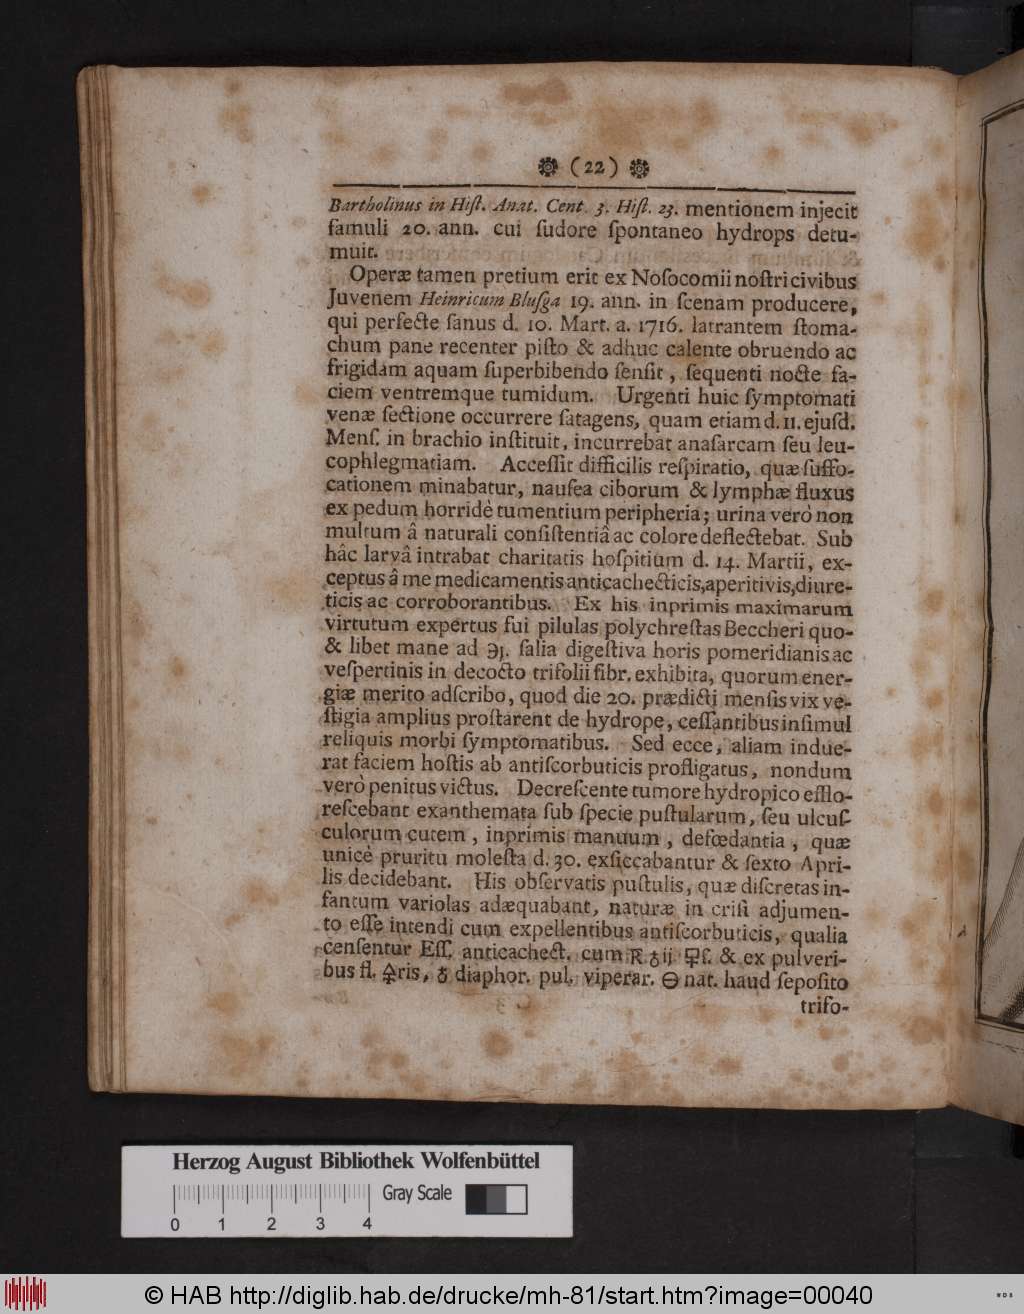 ❁ (22) ❁
Bartholinus in Hiſt. Anat. Cent. 3. Hiſt. 23. mentionem injecit
famuli 20. ann. cui ſudore ſpontaneo hydrops detu-
muit.
Operæ tamen pretium erit ex Noſocomii noſtri civibus
Juvenem Heinricum Bluſga 19. ann. in ſcenam producere,
qui perfecte ſanus d. 10. Mart. a. 1716. latrantem ſtoma-
chum pane recenter piſto & adhuc calente obruendo ac
frigidam aquam ſuperbibendo ſenſit, ſequenti nocte fa-
ciem ventremque tumidum. Urgenti huic ſymptomati
venæ ſectione occurrere ſatagens, quam etiam d. 11. ejuſd.
Menſ. in brachio inſtituit, incurrebat anaſarcam ſeu leu-
cophlegmatiam. Acceſſit difficilis reſpiratio, quæ ſuffo-
cationem minabatur, nauſea ciborum & lymphæ fluxus
ex pedum horridè tumentium peripheria; urina verò non
multum â naturali conſiſtentiâ ac colore deflectebat. Sub
hâc larvâ intrabat charitatis hoſpitium d. 14. Martii, ex-
ceptus â me medicamentis anticachecticis, aperitivis, diure-
ticis ac corroborantibus. Ex his inprimis maximarum
virtutum expertus fui pilulas polychreſtas Beccheri quo-
& libet mane ad ℈j. ſalia digeſtiva horis pomeridianis ac
veſpertinis in decocto trifolii fibr. exhibita, quorum ener-
giæ merito adſcribo, quod die 20. prædicti menſis vix ve-
ſtigia amplius proſtarent de hydrope, ceſſantibus inſimul
reliquis morbi ſymptomatibus. Sed ecce, aliam indue-
rat faciem hoſtis ab antiſcorbuticis profligatus, nondum
verò penitus victus. Decreſcente tumore hydropico efflo-
reſcebant exanthemata ſub ſpecie puſtularum, ſeu ulcuſ-
culorum cutem, inprimis manuum, defœdantia, quæ
unicè pruritu moleſta d. 30. exſiccabantur & ſexto Apri-
lis decidebant. His obſervatis puſtulis, quæ diſcretas in-
fantum variolas adæquabant, naturæ in criſi adjumen-
to eſſe intendi cum expellentibus antiſcorbuticis, qualia
cenſentur Eſſ. anticachect. cum ij ſ. & ex pulveri-
bus fl. 🜍ris, ♁ diaphor. pul. viperar. 🜔 nat. haud ſepoſito
trifo-
Herzog August Bibliothek Wolfenbüttel
Gray Scale
0 1 2 3 4
© HAB http://diglib.hab.de/drucke/mh-81/start.htm?image=00040